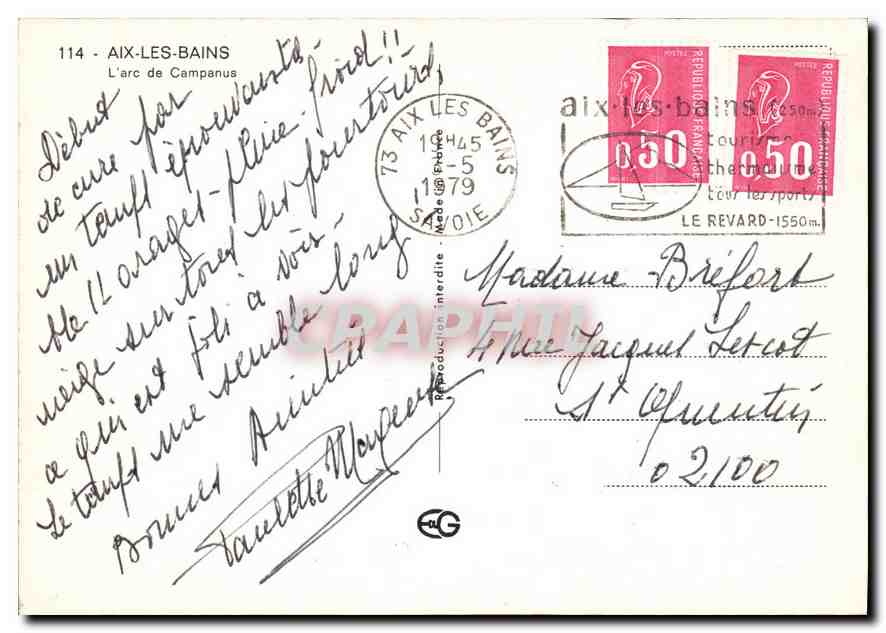 114 - AIX-LES-BAINS
L'arc de Campanus
Début
de cure par
un temps épouvanta-
ble !! orages - pluie - froid !!
neige sur tous les pourtours,
ce qui est joli à voir -
Le temps me semble long
Bonnes Amitiés
Paulette
Reproduction interdite - Made in France
73 AIX LES BAINS
19H45
-5
1979
SAVOIE
aix-les-bains 1250m.
tourisme
thermalisme
tous les sports
LE REVARD-1550m.
POSTES
REPUBLIQUE FRANÇAISE
0,50
POSTES
REPUBLIQUE FRANÇAISE
0,50
Madame Bréfort
4 rue Jacques Lescot
St Quentin
02100
CRAPHIL
EG